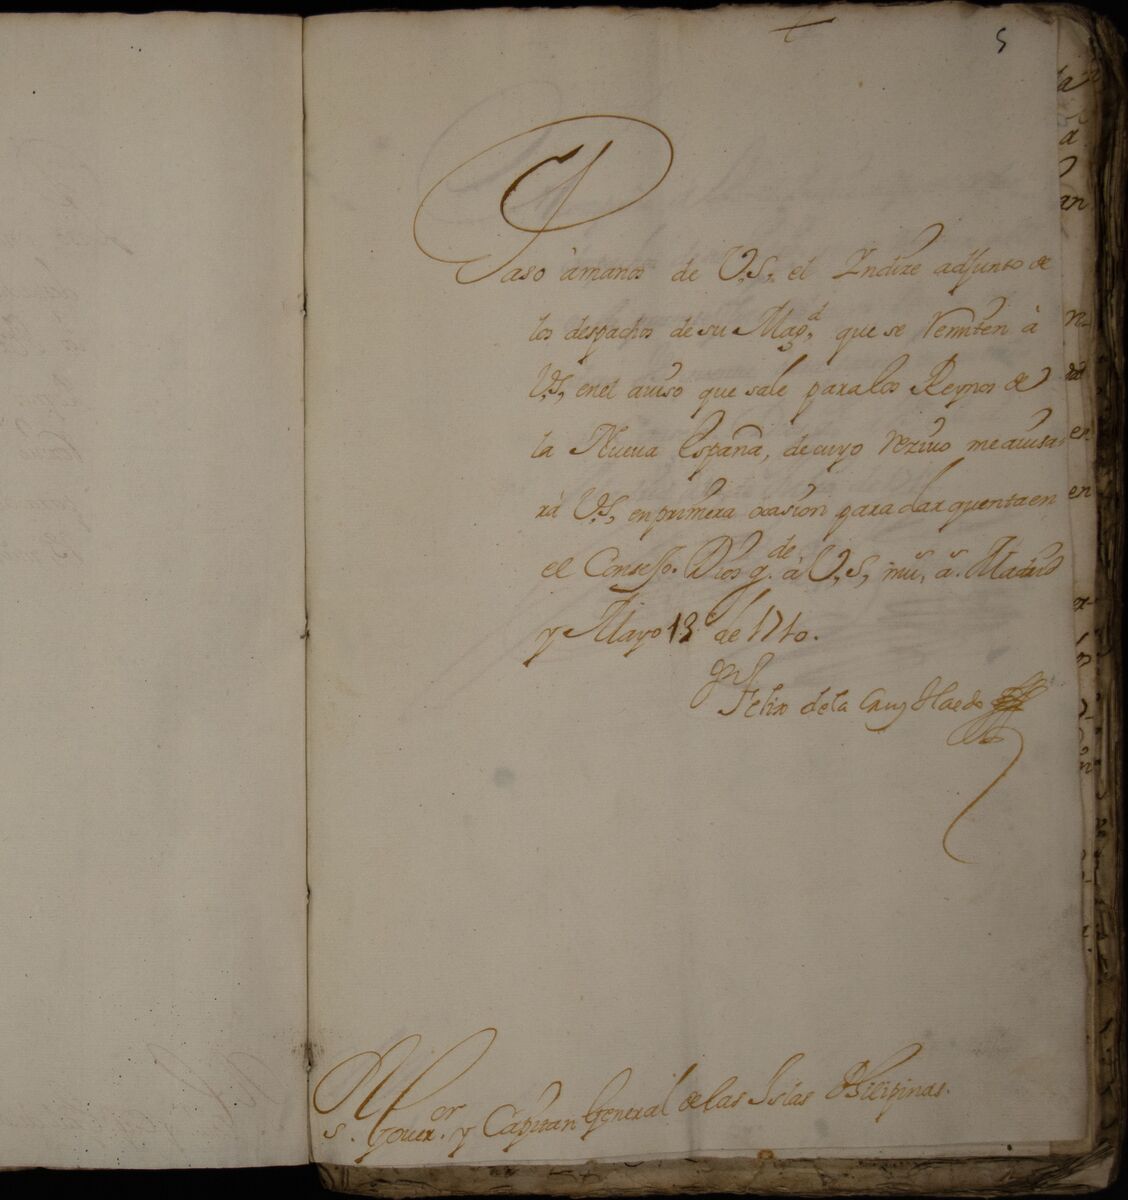 5
Paso à manos de V.S. el Yndize adjunto de
los despachos de su Mag.d que se remiten à
V.S. en el aviso que sale para los Reynos de
la Nueva España, de cuyo rezivo me avisa-
rá V.S. en primera ocasion para dar quenta en
el Consejo. Dios g.de à V.S. mu.s a.s Madrid
y Mayo 13 de 1710.
Felix de la Cruz Haedo
S. Gover.or y Capitan General de las Islas Philipinas.